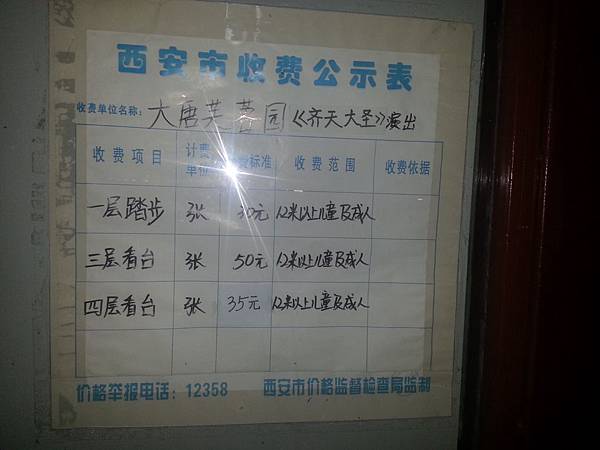 西安市收费公示表
收费单位名称：大唐芙蓉园《齐天大圣》演出
收费项目 计费单位 收费标准 收费范围 收费依据
一层踏步 张 30元 1.2米以上儿童及成人
三层看台 张 50元 1.2米以上儿童及成人
四层看台 张 35元 1.2米以上儿童及成人
价格举报电话：12358 西安市价格监督检查局监制